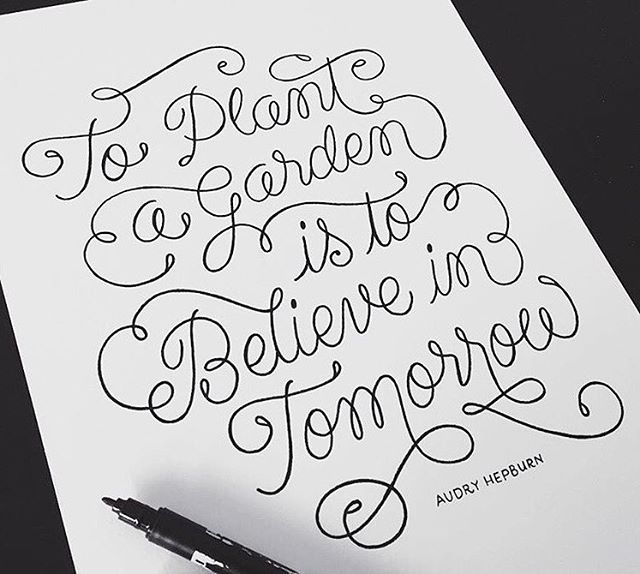 To Plant
a Garden
is to
Believe in
Tomorrow
AUDRY HEPBURN